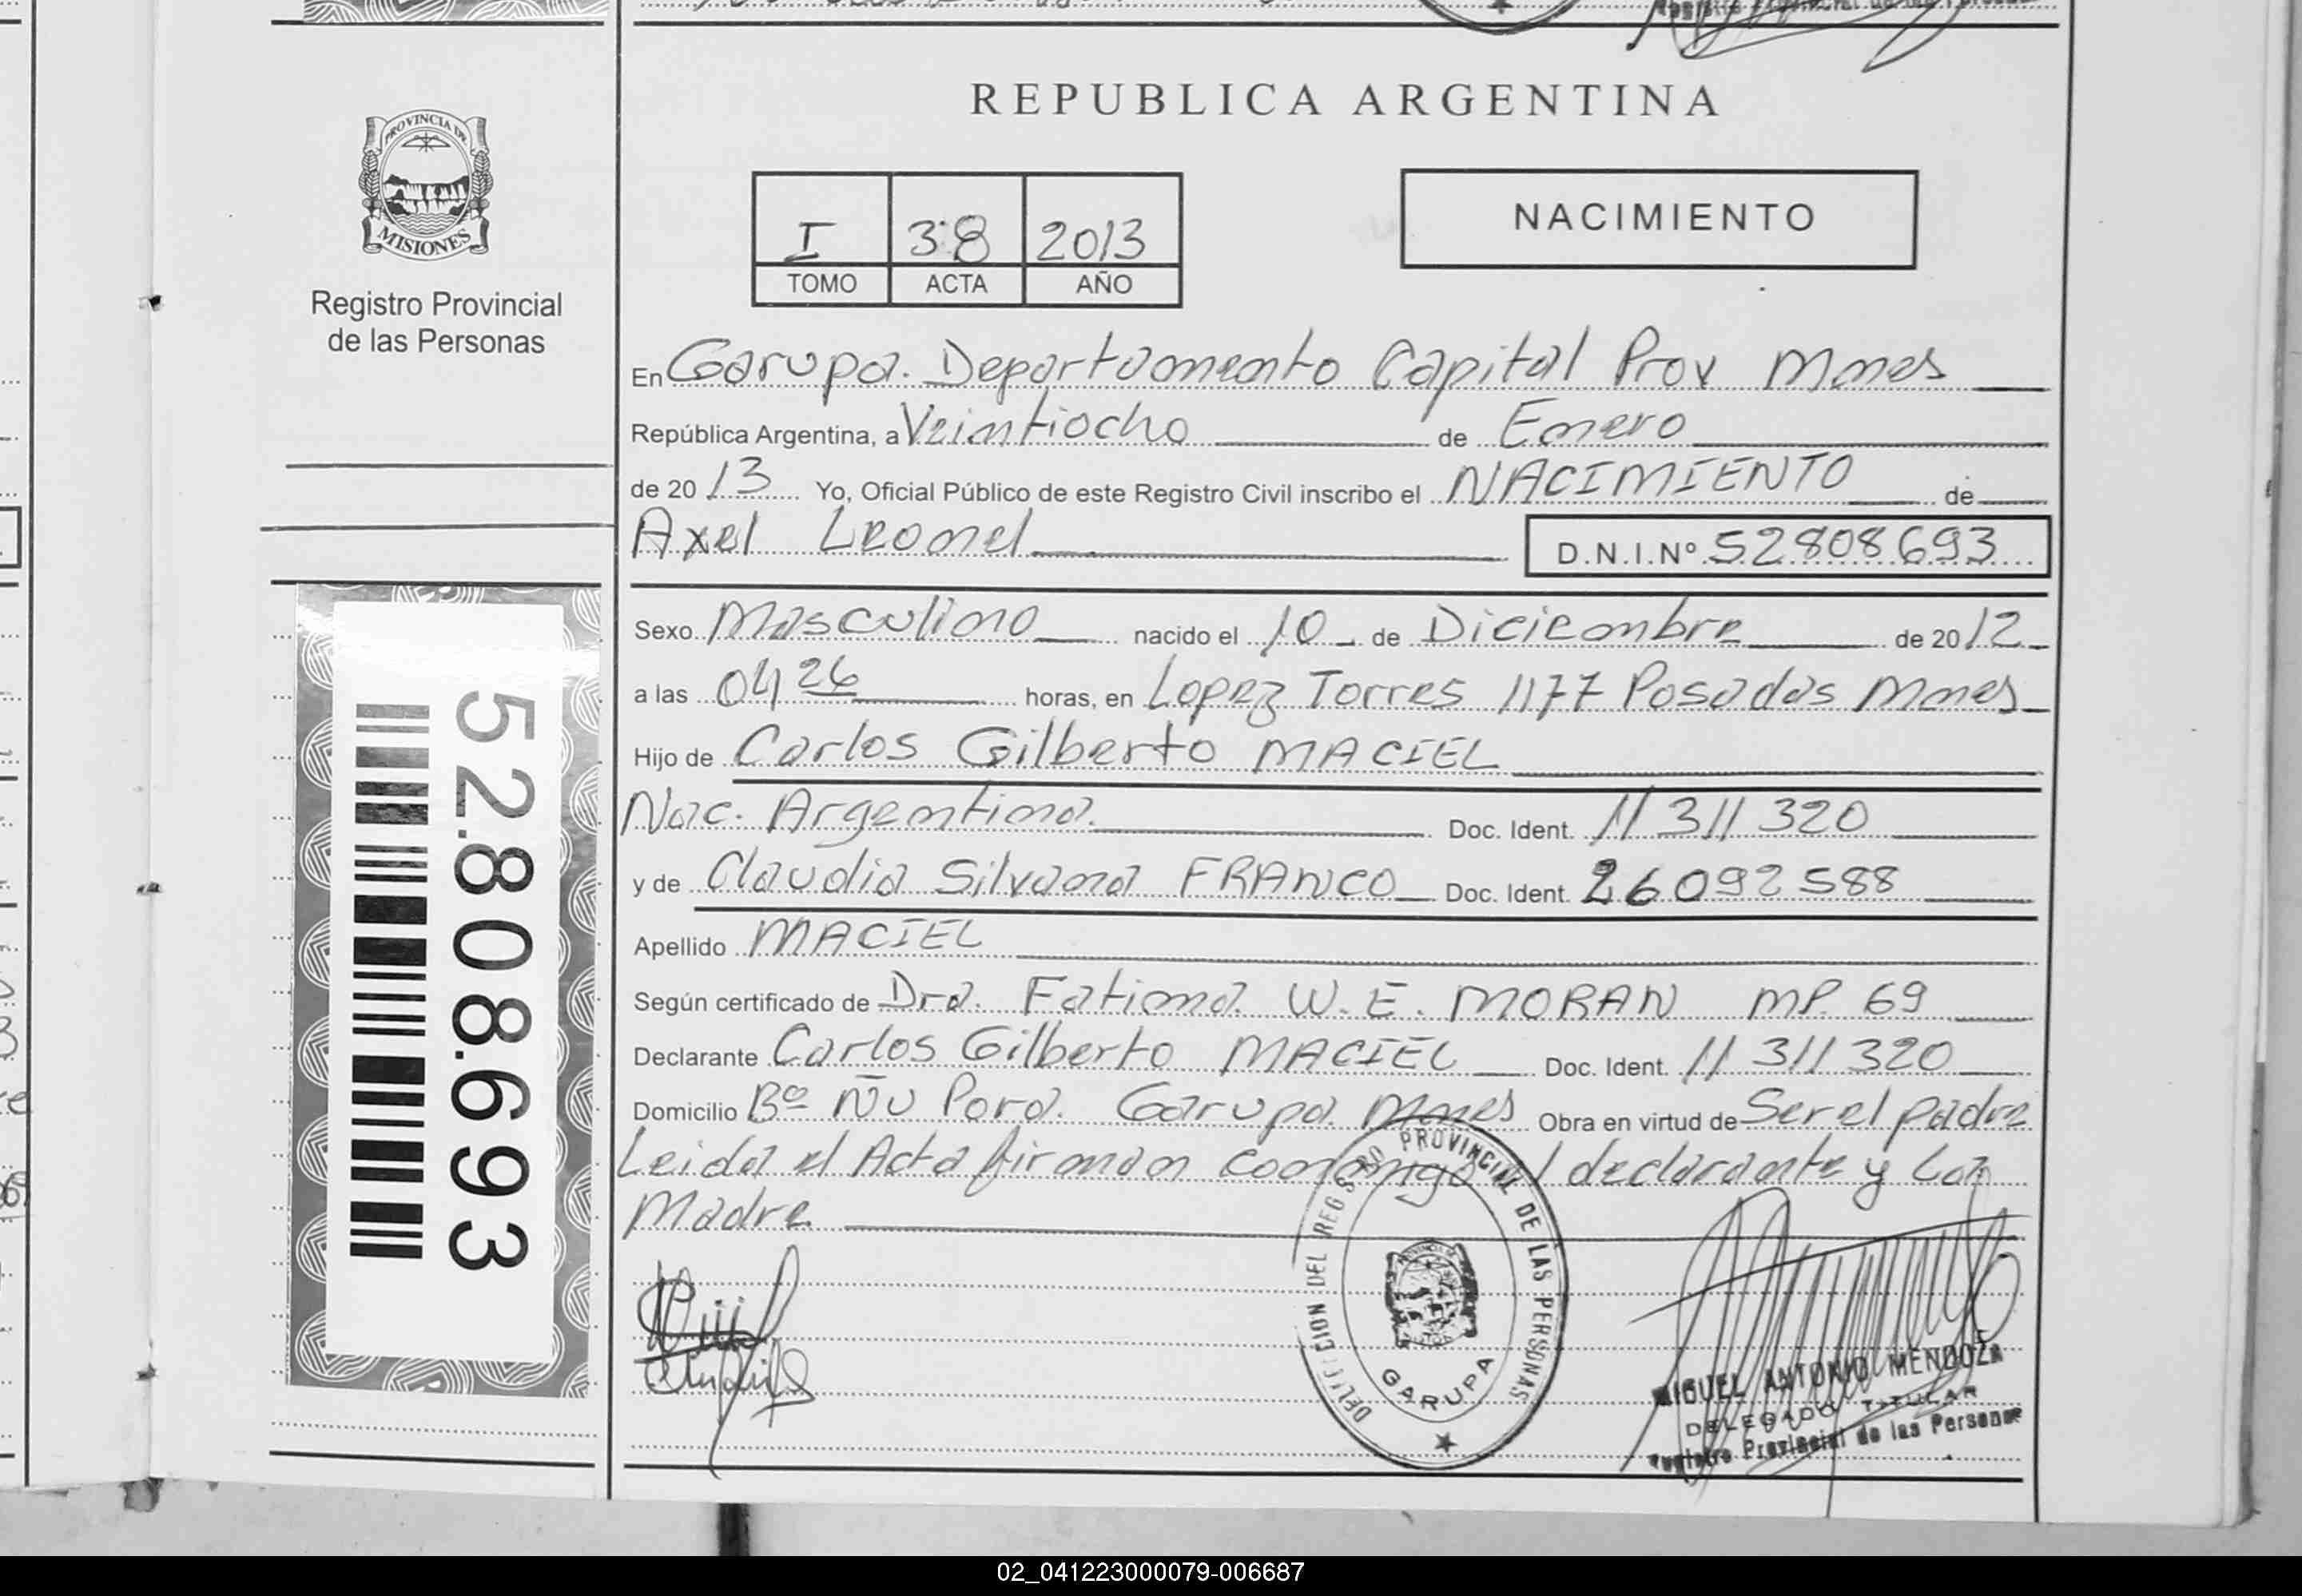 PROVINCIA DE
MISIONES
Registro Provincial
de las Personas
52.808.693
REPUBLICA ARGENTINA
I 38 2013
TOMO ACTA AÑO
NACIMIENTO
En Garupa. Departamento Capital Prov Mnes
República Argentina, a Veintiocho de Enero
de 20 13 Yo, Oficial Público de este Registro Civil inscribo el NACIMIENTO de
Axel Leonel D.N.I.Nº 52808693
Sexo Masculino nacido el 10 de Diciembre de 20 12
a las 04 26 horas, en Lopez Torres 1177 Posadas Mnes
Hijo de Carlos Gilberto MACIEL
Nac. Argentina. Doc. Ident. 11 311 320
y de Claudia Silvana FRANCO Doc. Ident. 26092588
Apellido MACIEL
Según certificado de Dra. Fatima W. E. MORAN MP. 69
Declarante Carlos Gilberto MACIEL Doc. Ident. 11 311 320
Domicilio Bº Ñu Pora. Garupa. Mnes Obra en virtud de Ser el padre
Leida el Acta firman conmigo el declarante y La
Madre
DELEGACION DEL REGISTRO PROVINCIAL DE LAS PERSONAS
GARUPA
MIGUEL ANTONIO MENDOZA
DELEGADO TITULAR
Registro Provincial de las Personas
02_041223000079-006687